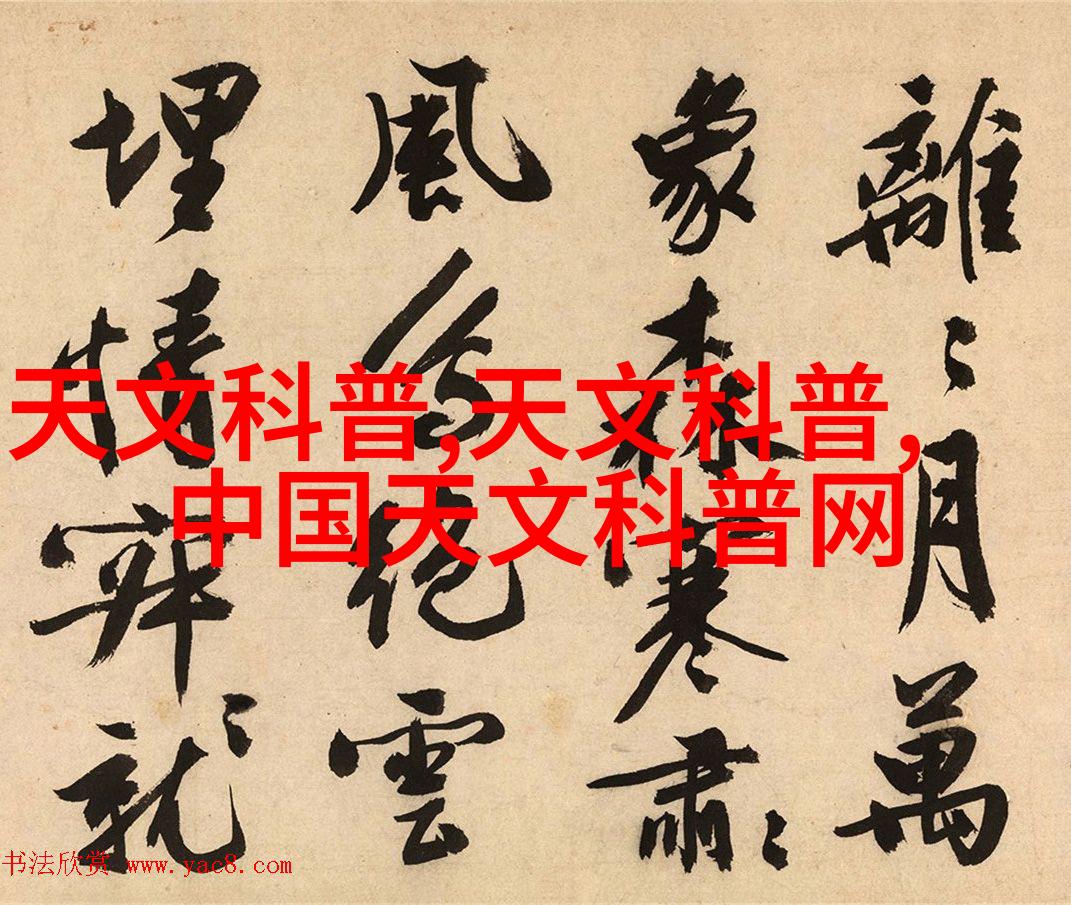 離〻月萬
象森寒肅〻
風為絕雲
埋情就〻
天文科普,天文科普,
中国天文科普网
书法欣赏 www.yac8.com